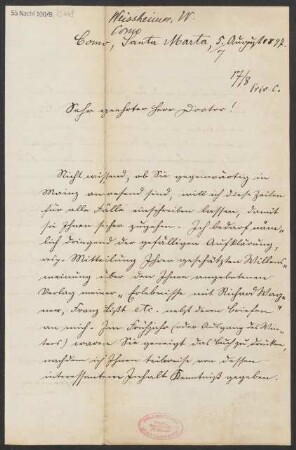 55 Nachl 100/B
Weissheimer, W.
Como
Como, Santa Marta, 5. August 1897.
17/8
Sehr geehrter Herr Doctor!
Nicht wissend, ob Sie gegenwärtig in
Mainz anwesend sind, will ich diese Zeilen
für alle Fälle einschreiben lassen, damit
sie Ihnen sicher zugehen. Ich bedarf näm-
lich dringend der gefälligen Aufklärung,
resp. Mitteilung Ihrer geschätzten Willens-
meinung über den Ihnen angebotenen
Verlag meiner "Erlebnisse mit Richard Wag-
ner, Franz Liszt etc. nebst deren Briefen"
an mich. Im Frühjahr (oder Ausgang des Win-
ters) waren Sie geneigt das Buch zu drucken,
nachdem ich Ihnen teilweise von dessen
interessantem Inhalt Kenntniß gegeben.